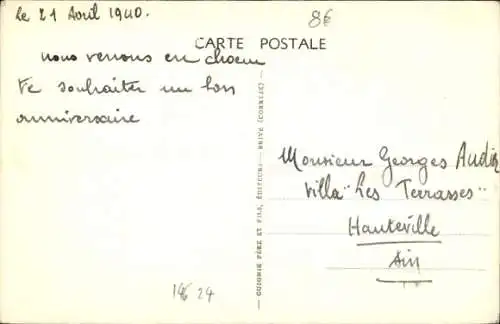 le 21 Avril 1940.
8€
CARTE POSTALE
nous venons en choeur
te souhaiter un bon
anniversaire
Monsieur Georges
Villa "Les Terrasses"
Hauteville
Ain
PÈRE ET FILS, ÉDITEURS — BRIVE (CORRÈZE)
24